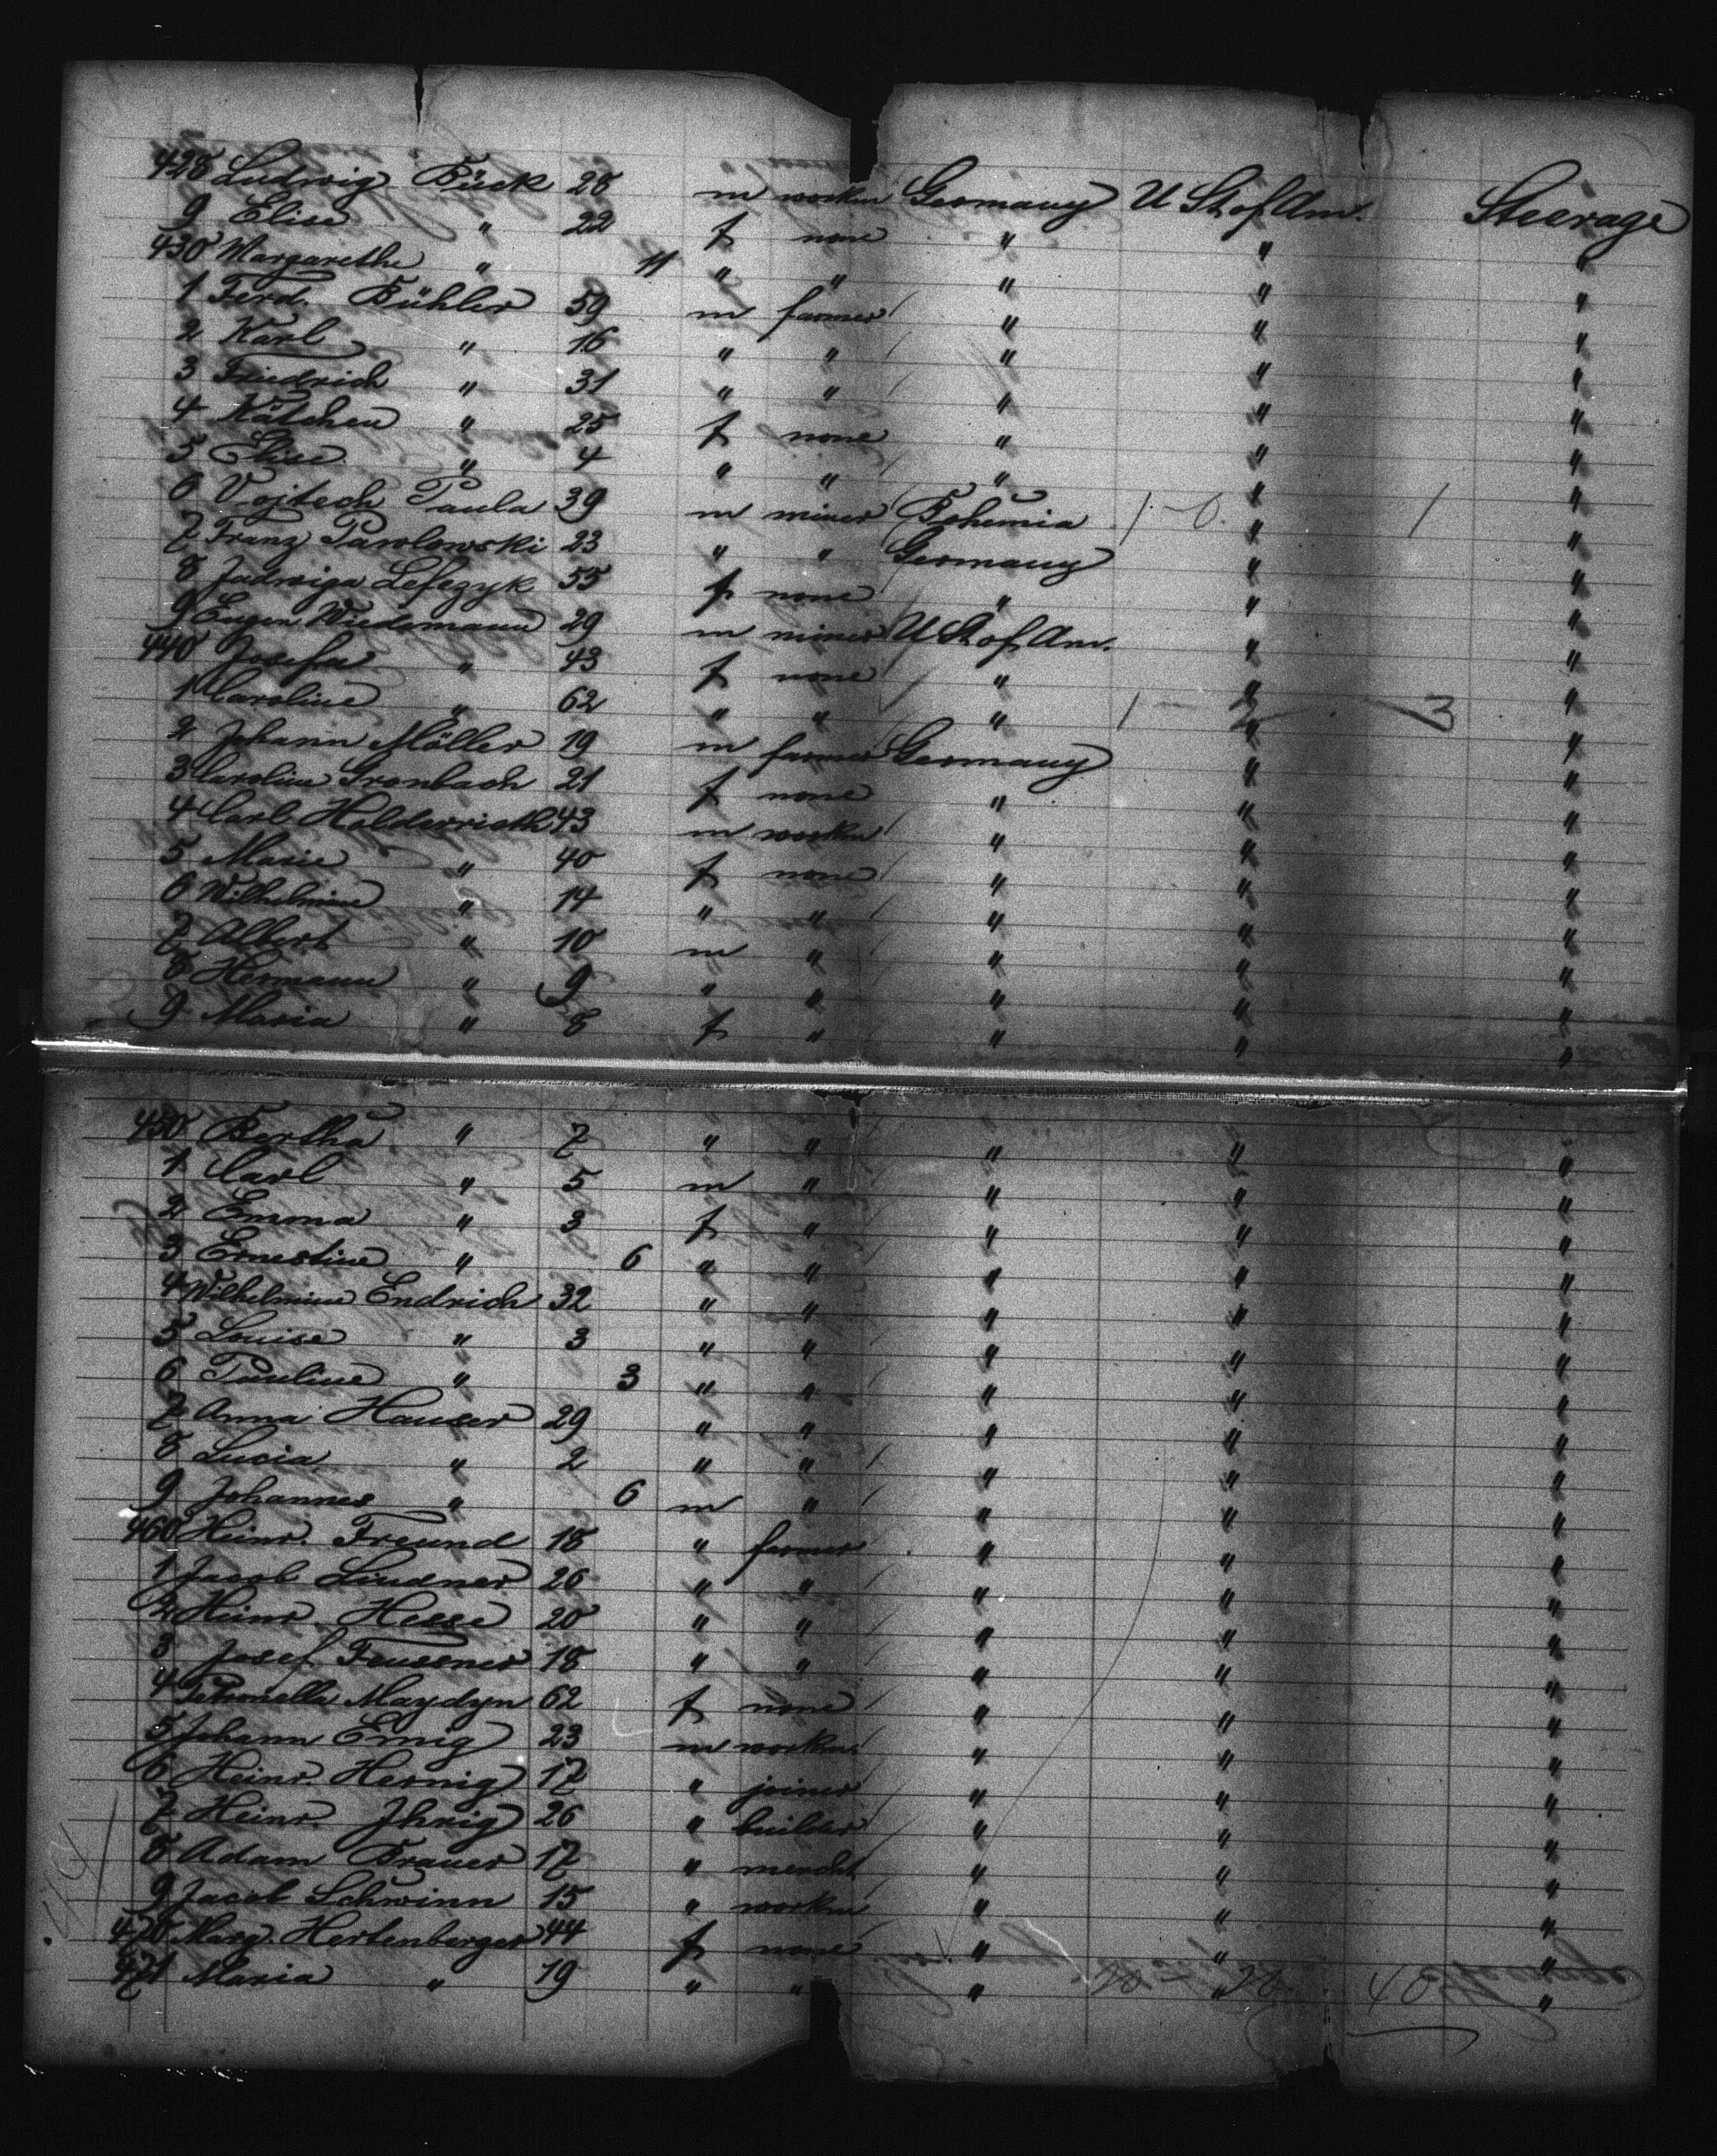 428 Ludwig Bück 28 m workm Germany U St. of Am. Steerage
9 Elise " 22 f none " " "
430 Margarethe " 11 " " " " "
1 Ferd. Bühler 59 m farmer " " "
2 Karl " 16 " " " " "
3 Friedrich " 31 " " " " "
4 Kätchen " 25 f none " " "
5 Elise " 4 " " " " "
6 Vojtech Paula 39 m miner Bohemia 1-0. " 1 "
7 Franz Pawlowski 23 " " Germany " "
8 Jadwiga Lefezyk 55 f none " " "
9 Eugen Wiedemann 29 m miner U St. of Am. " "
440 Josefa " 43 f none " " "
1 Caroline " 62 " " " 1 - 2 " 3 "
2 Johann Möller 19 m farmer Germany " "
3 Caroline Gronbach 21 f none " " "
4 Carl Holderrieth 43 m workm " " "
5 Marie " 40 f none " " "
6 Wilhelmine " 14 " " " " "
7 Albert " 10 m " " " "
8 Hermann " 9 " " " " "
9 Maria " 8 f " " " "
450 Bertha " 7 " " " " "
1 Carl " 5 m " " " "
2 Emma " 3 f " " " "
3 Ernestine " 6 " " " " "
4 Wilhelmine Endrich 32 " " " " "
5 Louise " 3 " " " " "
6 Pauline " 3 " " " " "
7 Anna Hauser 29 " " " " "
8 Lucia " 2 " " " " "
9 Johannes " 6 m " " " "
460 Heinr. Freund 18 " farmer " " "
1 Jacob Lindner 26 " " " " "
2 Heinr. Hesse 20 " " " " "
3 Josef Feussner 18 " " " " "
4 Petronella Maydyn 62 f none " " "
5 Johann Emig 23 m workm. " " "
6 Heinr. Hernig 17 " joiner " " "
7 Heinr. Jhrig 26 " builder " " "
8 Adam Brauer 17 " mercht " " "
9 Jacob Schwinn 15 " workm " " "
470 Marg. Hertenberger 44 f none " " "
471 Maria " 19 " " " 20 - 20 " 40 "